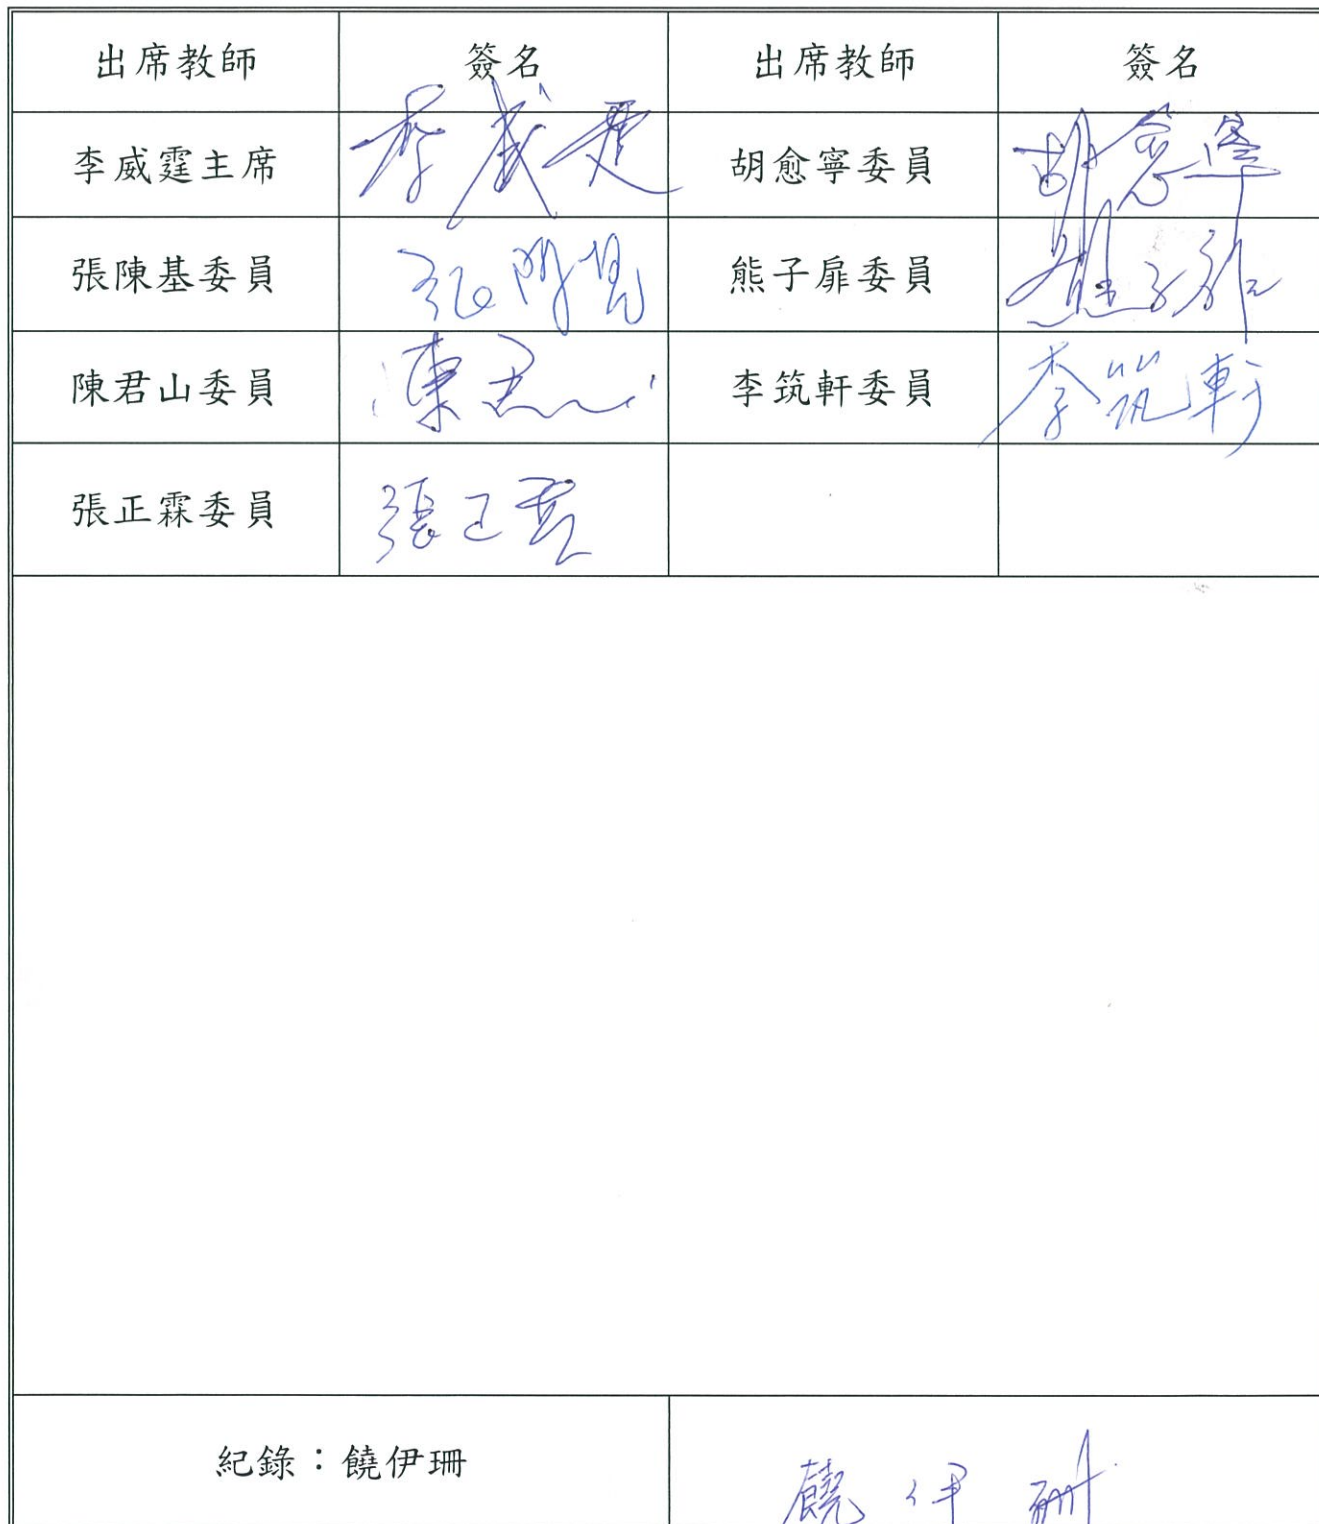 出席教師 簽名 出席教師 簽名
李威霆主席 李威霆 胡愈寧委員 胡愈寧
張陳基委員 張陳基 熊子扉委員 熊子扉
陳君山委員 陳君山 李筑軒委員 李筑軒
張正霖委員 張正霖
紀錄：饒伊珊 饒伊珊